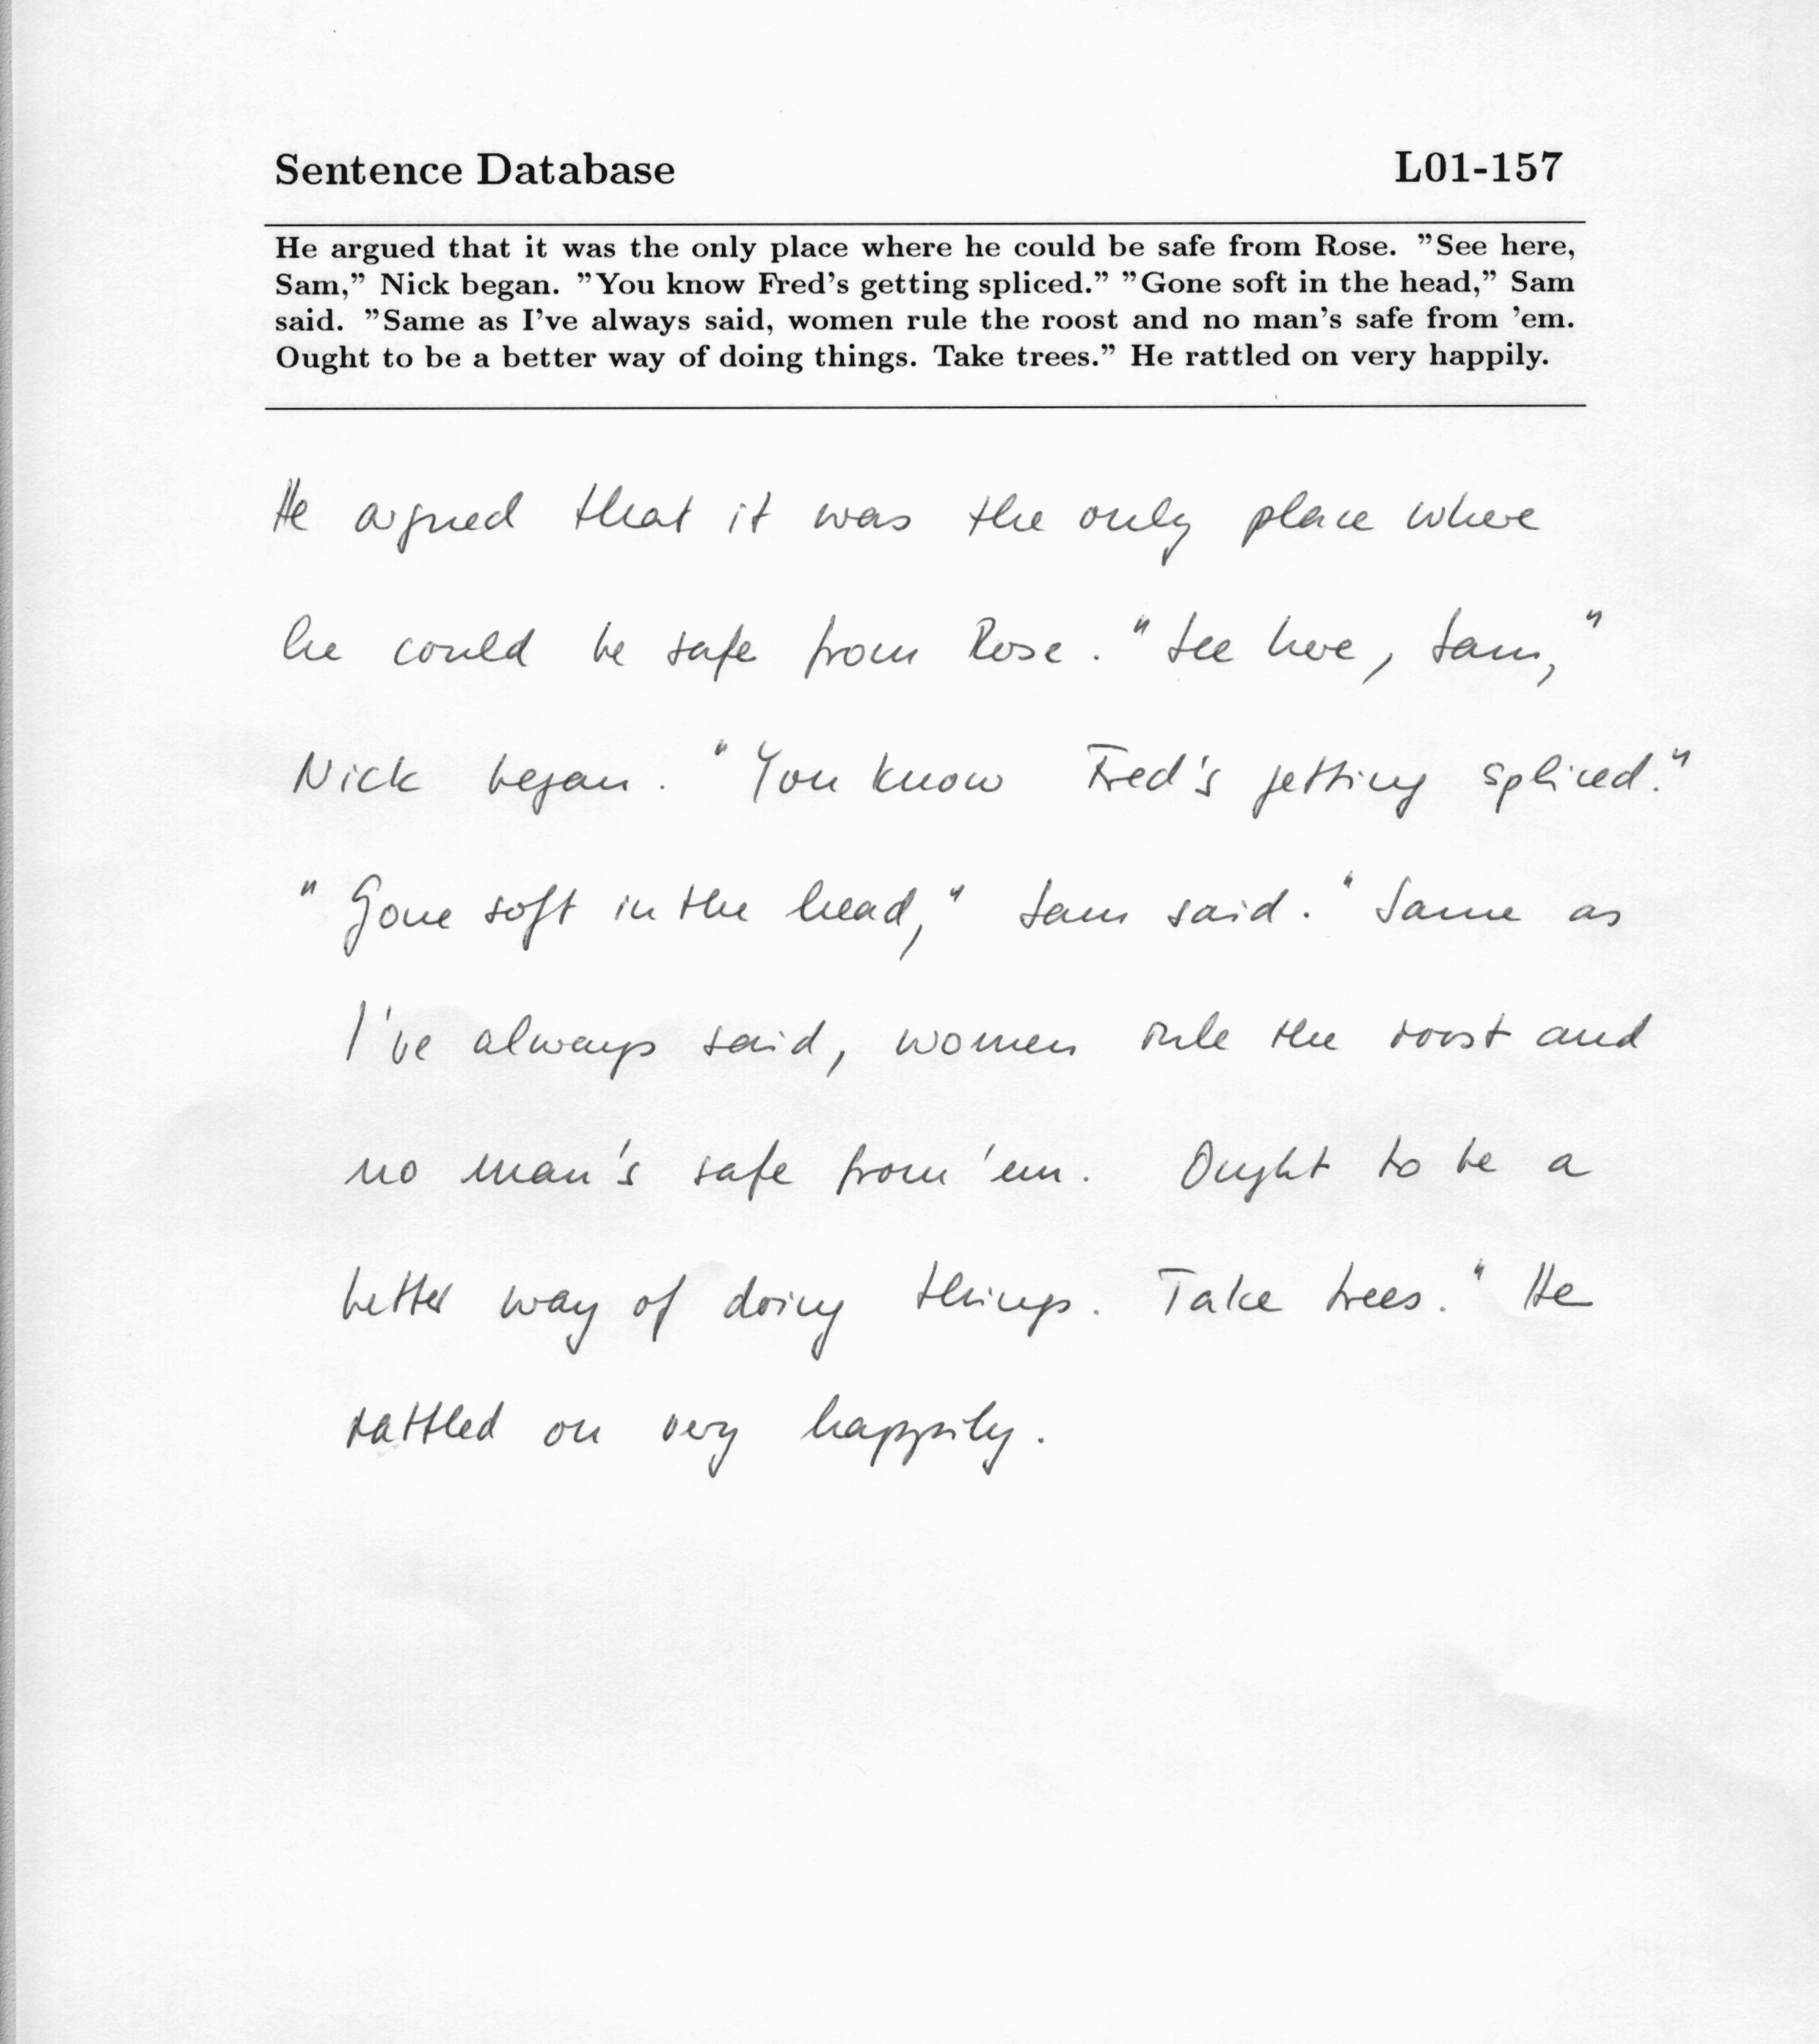 Sentence Database L01-157
He argued that it was the only place where he could be safe from Rose. ”See here,
Sam,” Nick began. ”You know Fred’s getting spliced.” ”Gone soft in the head,” Sam
said. ”Same as I’ve always said, women rule the roost and no man’s safe from ’em.
Ought to be a better way of doing things. Take trees.” He rattled on very happily.
He argued that it was the only place where
he could be safe from Rose. "See here, Sam,"
Nick began. "You know Fred's getting spliced."
"Gone soft in the head," Sam said. "Same as
I've always said, women rule the roost and
no man's safe from 'em. Ought to be a
better way of doing things. Take trees." He
rattled on very happily.